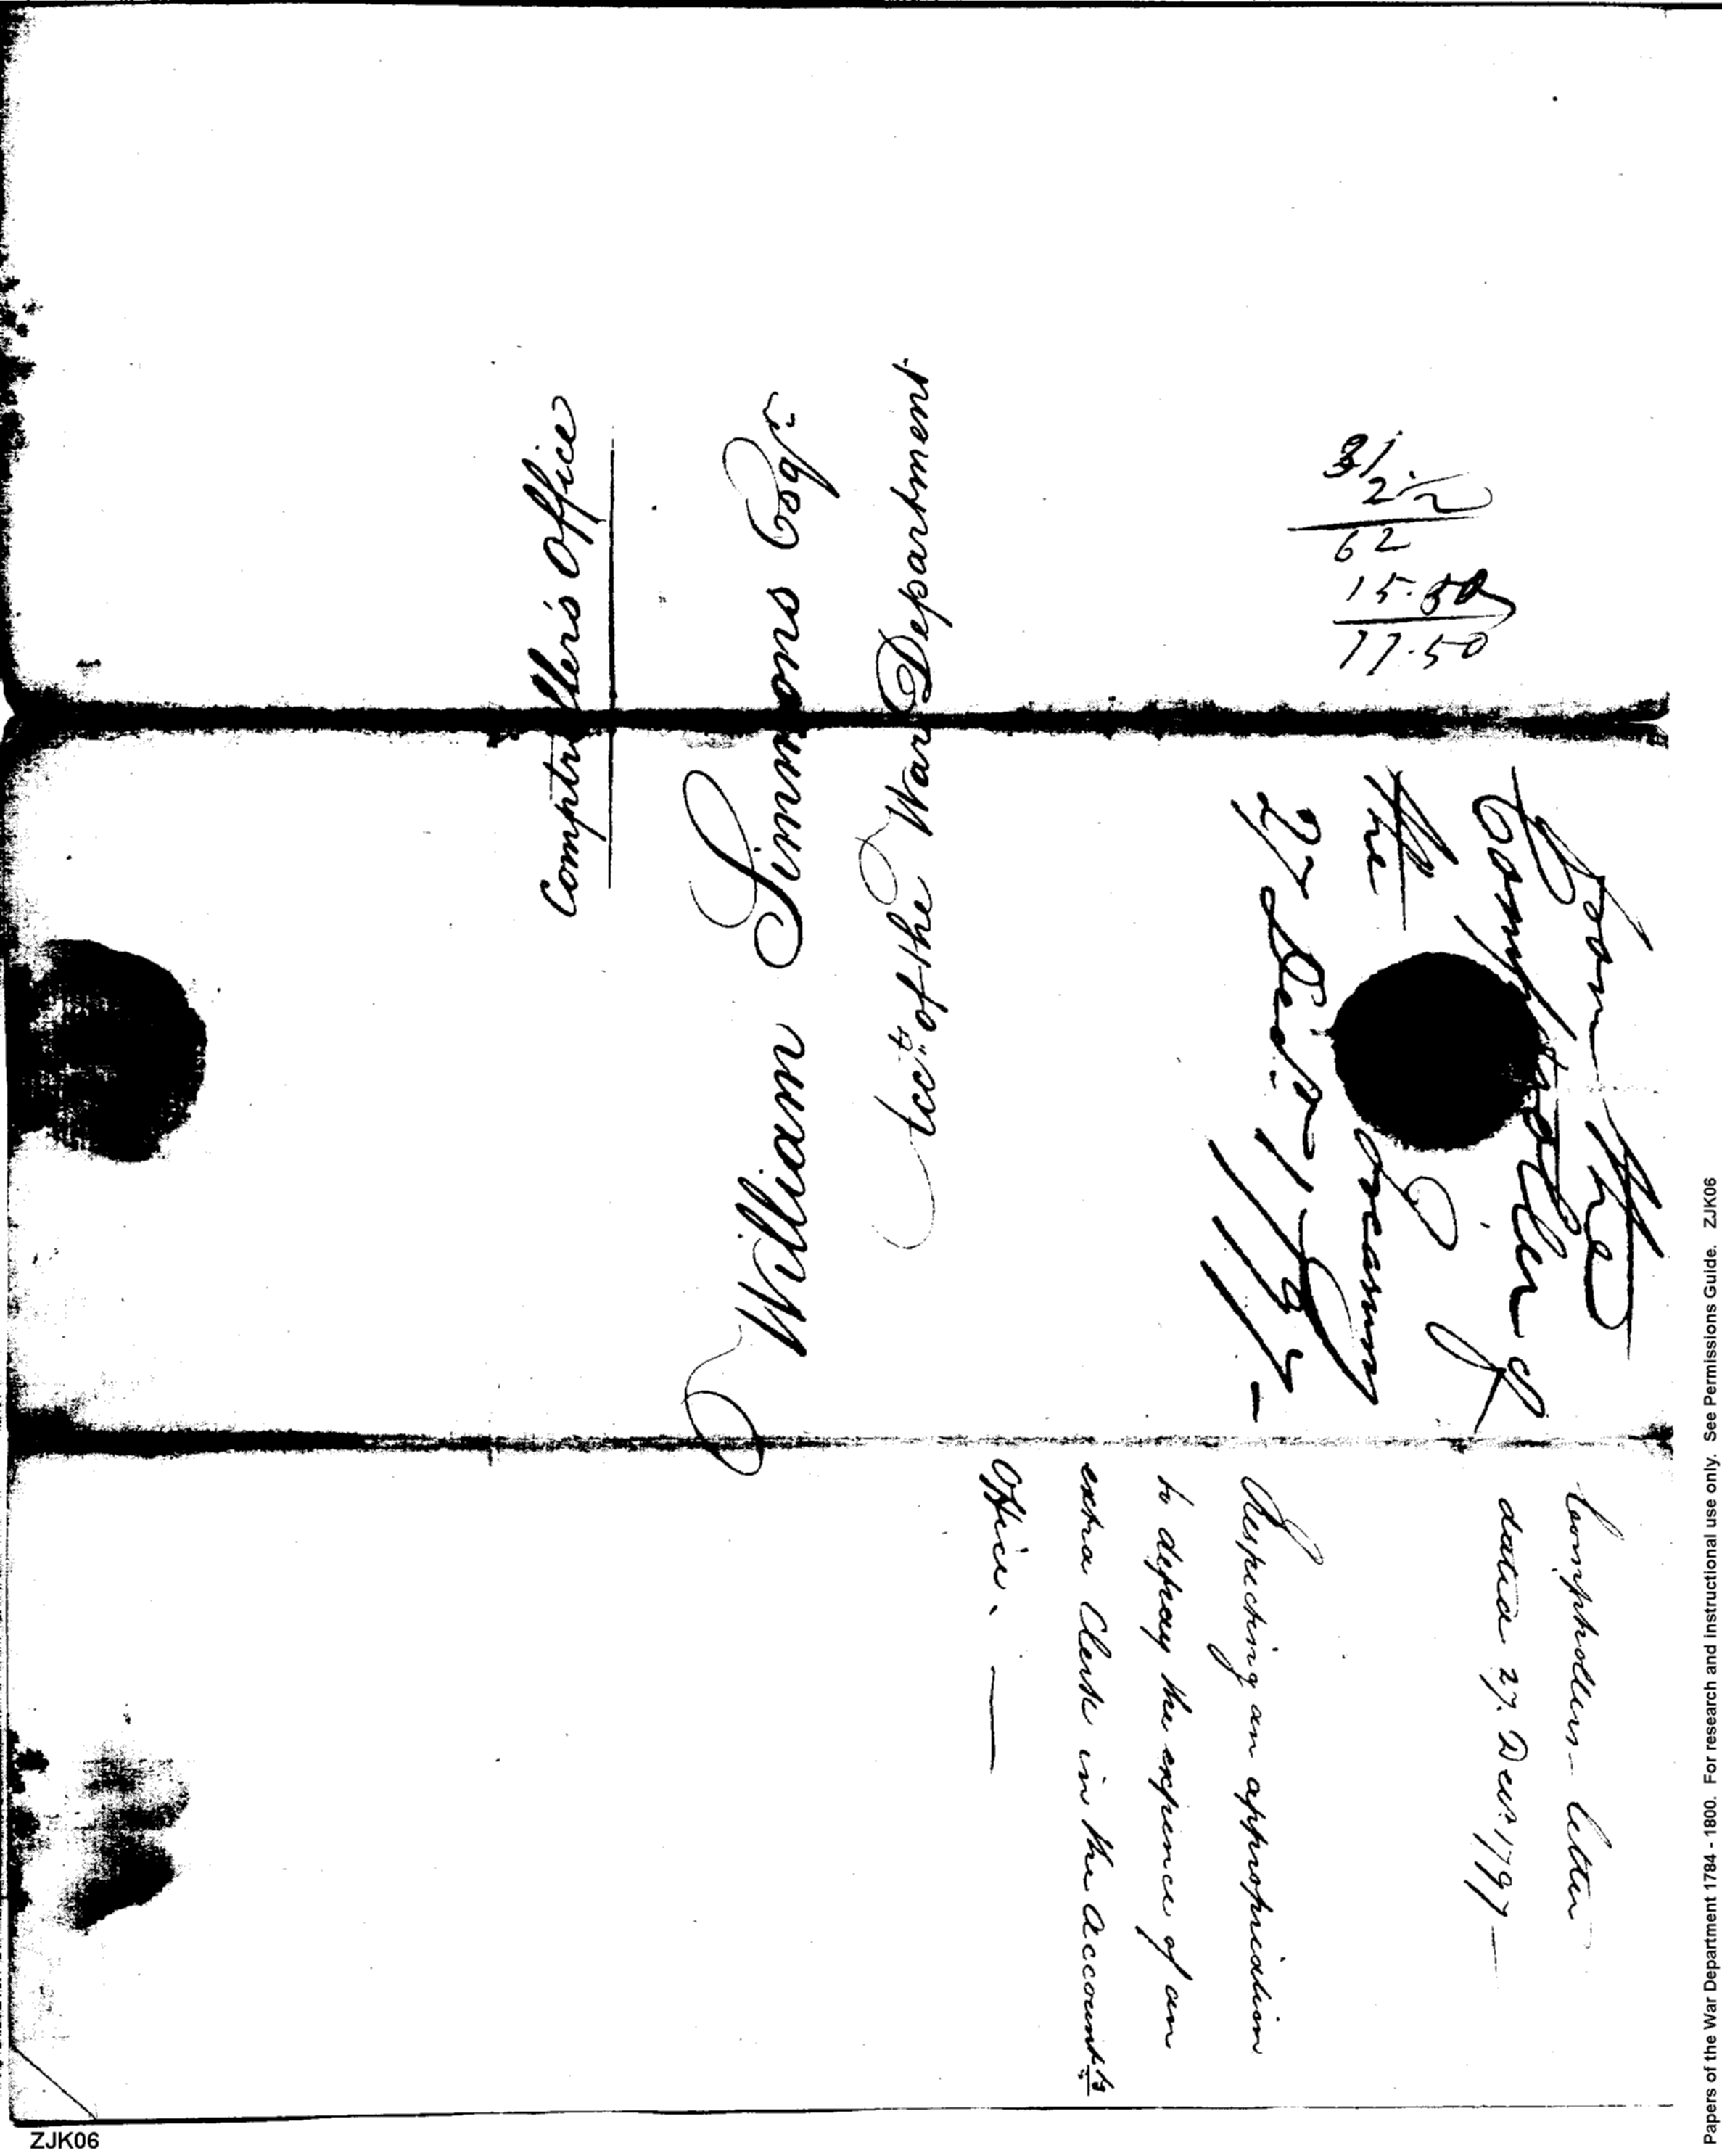 Comptroller's Office
William Simmons Esqr.
Acct. of the War Department
31
2
62
15.50
77.50
From the
Comptroller of
the
Treasury
27 Decr. 1797 —
Comptrollers letter
dated 27. Decr. 1797 —
Respecting an appropriation
to defray the expence of an
extra Clerk in the Account.ts
Office. —
Papers of the War Department 1784 - 1800. For research and instructional use only. See Permissions Guide. ZJK06
ZJK06